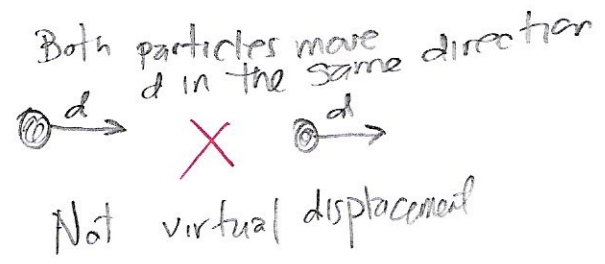 Both particles move
d in the same direction
d d
Not virtual displacement